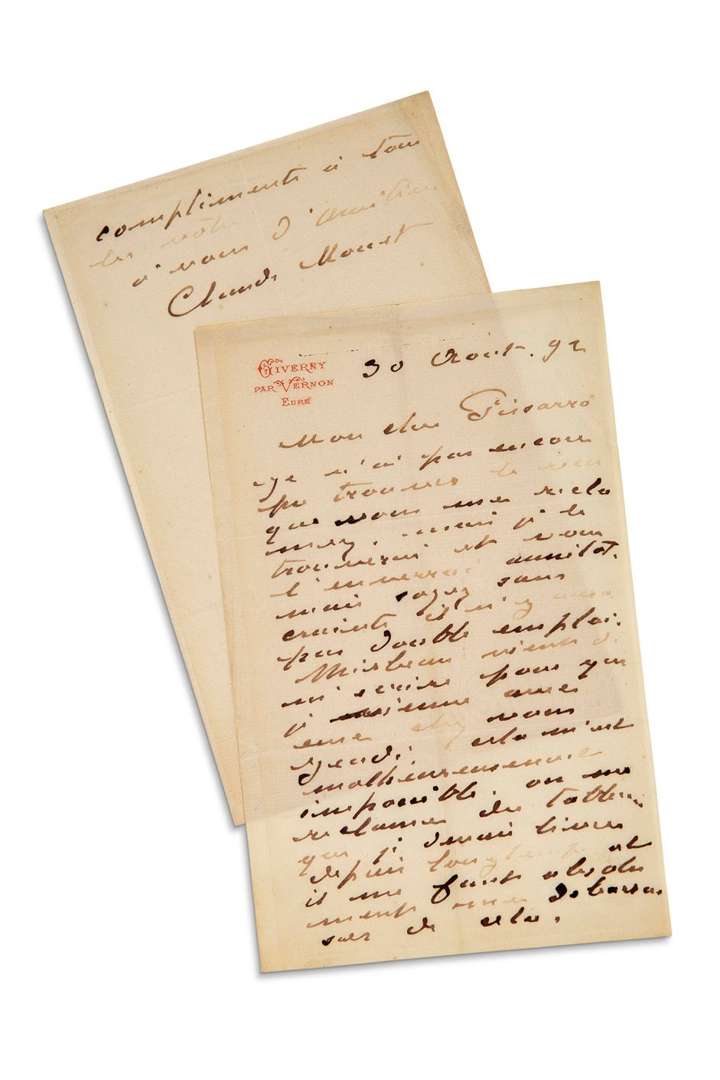 compliments à tous
les vôtres
à vous d'amitié
Claude Monet
GIVERNY
PAR VERNON
EURE
30 Août. 92
Mon cher Pissarro
Je n'ai pas encore
pu trouver le reçu
que vous me récla
mez. mais je le
trouverai et vous
l'enverrai aussitôt.
mais soyez sans
crainte il n'y aura
pas double emploi.
Mirbeau vient de
m'écrire pour que
j' vienne avec
eux chez vous
jeudi. cela m'est
malheureusement
impossible. on me
réclame des tableaux
que j' devais livrer
depuis longtemps et
il me faut absolu
ment me débarras
ser de cela.